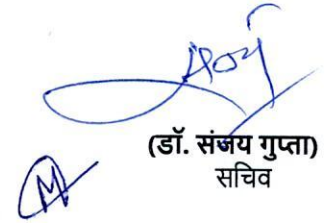 (डॉ. संजय गुप्ता)
सचिव